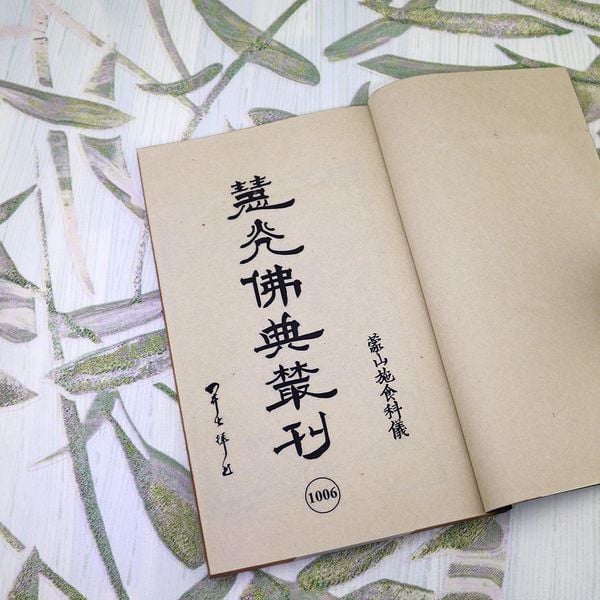 蒙山施食科儀
慧光佛典叢刊
1006